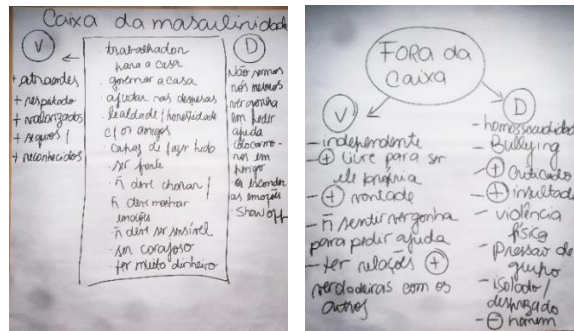 Caixa da masculinidade
V
+ atraentes
+ respeitado
+ valorizados
+ seguros /
+ reconhecidos
· trabalhador
para a casa
· governar a casa
· ajudar nas despesas
· lealdade / honestidade
c/ os amigos
· capaz de fazer tudo
· ser forte
· ñ deve chorar /
ñ deve mostrar
emoções
· ñ deve ser sensível
· ser corajoso
· ter muito dinheiro
D
Não sermos
nós mesmos
vergonha
em pedir
ajuda
colocarmo-
nos em
perigo
esconder
as emoções
· Show off
FORA da
Caixa
V
- independente
- + livre para ser
ele própria
- + vontade
- ñ sentir vergonha
para pedir ajuda
- ter relações +
verdadeiras com os
outros
D
- homossexualidade
- Bullying
- + criticado
- + insultado
- violência
física
- Pressão de
grupo
- isolado /
desprezado
- - homem